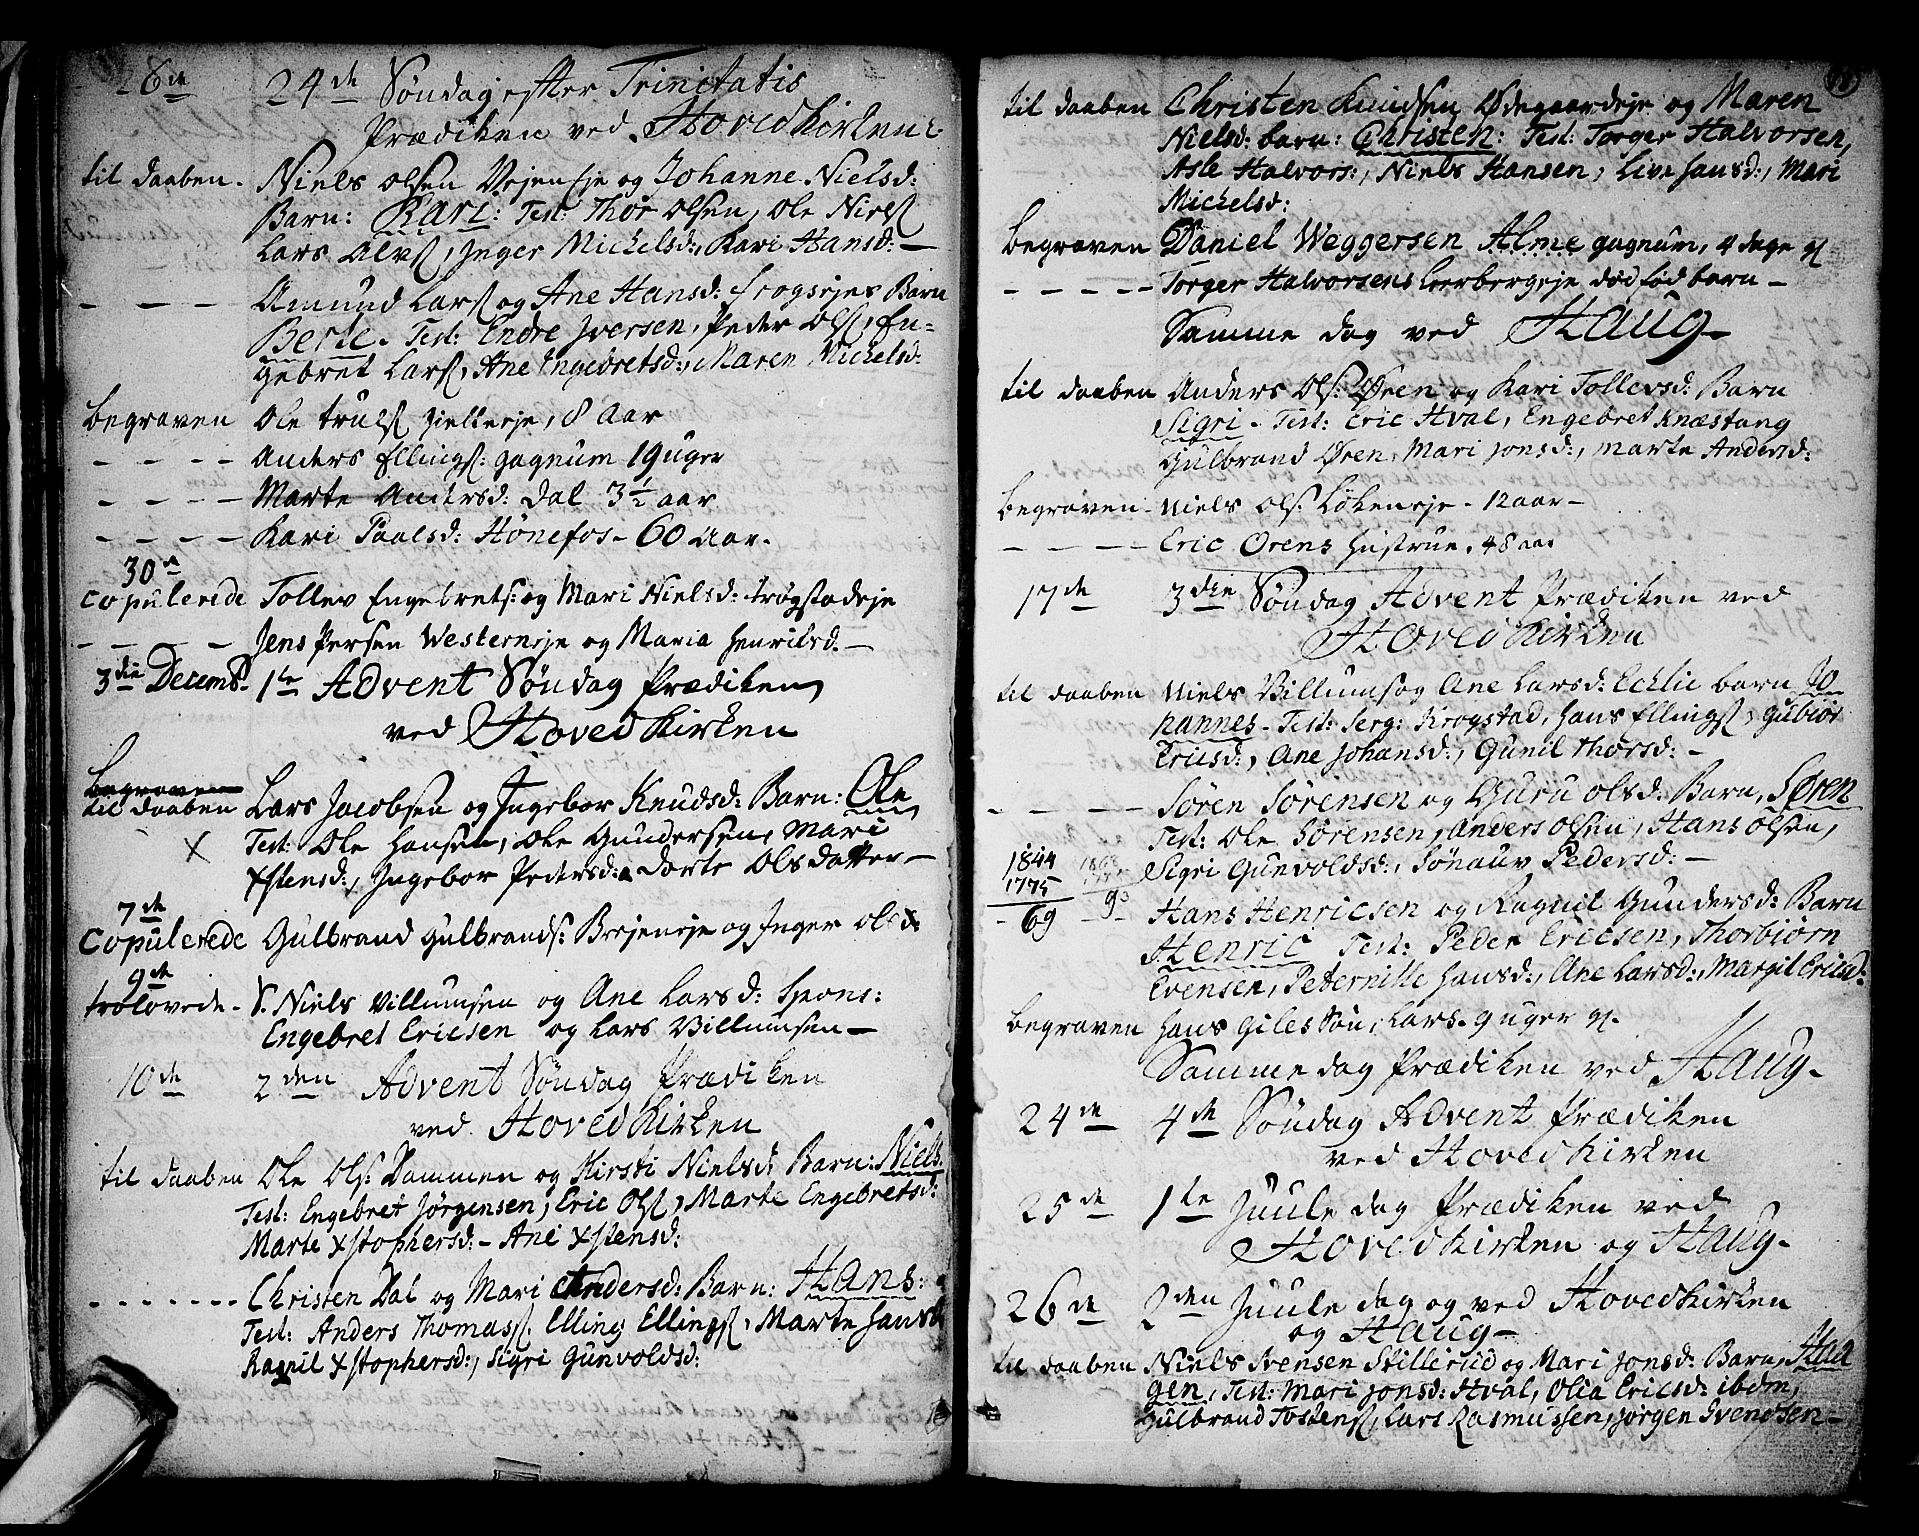 26de 24de Søndag efter Trinitatis
Prædiken ved Hovedkirken
til daaben. Niels Olsen Vejeneje og Johanne Nielsd:
Barn: Kari: Test: Thor Olsen, Ole Niels
Lars Alvs, Inger Michelsd:, Kari Hansd: —
— — — Amund Lars og Ane Hansd: Barn
Berte. Test: Endre Iversen, Peder Ols, En-
gebret Lars, Ane Ingebretsd:, Maren Michelsd:
begraven Ole truls, 8 Aar
— — — — Anders Ellings: gagnum 19 uger
— — — — Marte Andersd: Dal 3½ aar
— — — — Kari Paalsd: Hønefos – 60 Aar.
30te
Copulerede Tollev Engebrets: og Mari Nielsd: trøgstadeje
— — — Jens Persen Westerneje og Maria Henriksd. —
3die Decemb. 1te Advent Søndag Prædiken
ved Hovedkirken
begraven
til daaben Lars Jacobsen og Ingebor Knudsd: Barn: Ole
X Test: Ole Hansen, Ole Gundersen, Mari
Xstensd:, Ingebor Pedersd: Dorte Olsdatter —
7de
Copulerede Gulbrand Gulbrands: og Inger Olsd:
9de
trolovede – S. Niels Villumsen og Ane Larsd: Spons:
Engebret Ericsen og Lars Villumsen —
10de 2den Advent Søndag Prædiken
ved Hovedkirken
til daaben Ole Ols: Dammen og Kirsti Nielsd: Barn: Niels.
Test: Engebret Jørgensen, Eric Ols, Marte Engebretsd:
Marte Xstophersd: – Ane Xstensd:
- - - - - - - Christen Dal og Mari Andersd: Barn: Hans:
Test: Anders Thomas, Elling Ellings, Marte Hansd
Ragnil Xstophersd:, Sigri Gunvoldsd:
til daaben Christen Knudsen Ødegaardeje og Maren
Nielsd: barn: Christen: Test: Torger Halvorsen,
Asle Halvors:, Niels Hansen, Live Hansd:, Mari
Michelsd:
begraven Daniel Weggersen Alme gagnum, 4 dage gl
— — — — — Torger Halvorsens Leerbergeje død fød barn —
Samme dag ved Haug —
til daaben Anders Ols: Øren og Kari Tollevsd: Barn
Sigri – Test: Eric Hval, Engebret Knæstang
Gulbrand Øren, Mari Jonsd:, Marte Andersd:
begraven – Niels Ols. Løkeneje – 12 aar —
— — — — Eric Ørens Hustrue, 48 aar
17de 3die Søndag Advent Prædiken ved
Hovedkirken
til daaben Niels Villums og Ane Larsd: Echlie barn Jo
hannes – Test: Serg: Krogstad, Hans Ellings, Gubiør
Ericsd:, Ane Johansd:, Gunil Thorsd: —
— — — — Søren Sørensen og Guru Olsd: Barn, Søren
Test: Ole Sørensen, Anders Olsen, Hans Olsen,
1844
1775
69
Sigri Gunvoldsd:, Sønauv Pedersd: —
Hans Henricsen og Ragnil Gundersd: Barn
Henric Test: Peder Ericsen, Thorbiørn
Evensen, Peternille Hansd:, Ane Larsd:, Margit Ericsd:
begraven Hans Giles Søn, Lars. 9 uger gl.
Samme dag Prædiken ved Haug —
24de 4de Søndag Advent Prædiken
ved Hovedkirken
25de 1te Juule dag Prædiken ved
Hovedkirken og Haug —
26de 2den Juule dag og ved Hovedkirken
og Haug —
til daaben Niels Svensen Stillerud og Mari Jonsd: Barn, Haa
gen, Test: Mari Jonsd: Hval, Olia Ericsd: ibdm,
Gulbrand Tostens, Lars Rasmussen, Jørgen Svendsen —